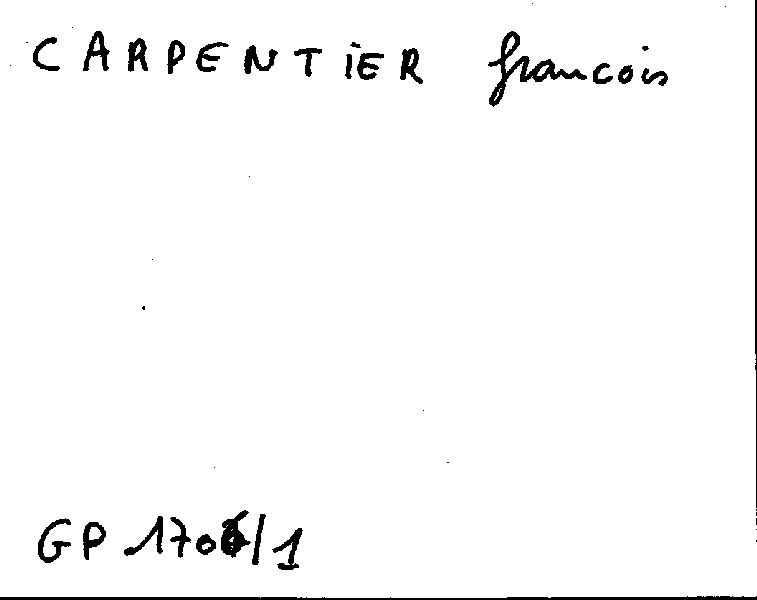 CARPENTIER francois
GP 1706/1